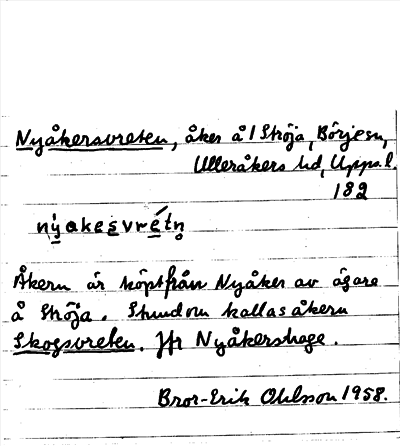 Nyåkersvreten, åker å 1 Ströja, Börjesn,
Ulleråkers hd, Upps.l.
182
nỳakesvrétn̥
Åkern är köpt från Nyåker av ägare
å Ströja. Stundom kallas åkern
Skogsvreten. Jfr Nyåkershage.
Bror-Erik Ohlsson 1958.